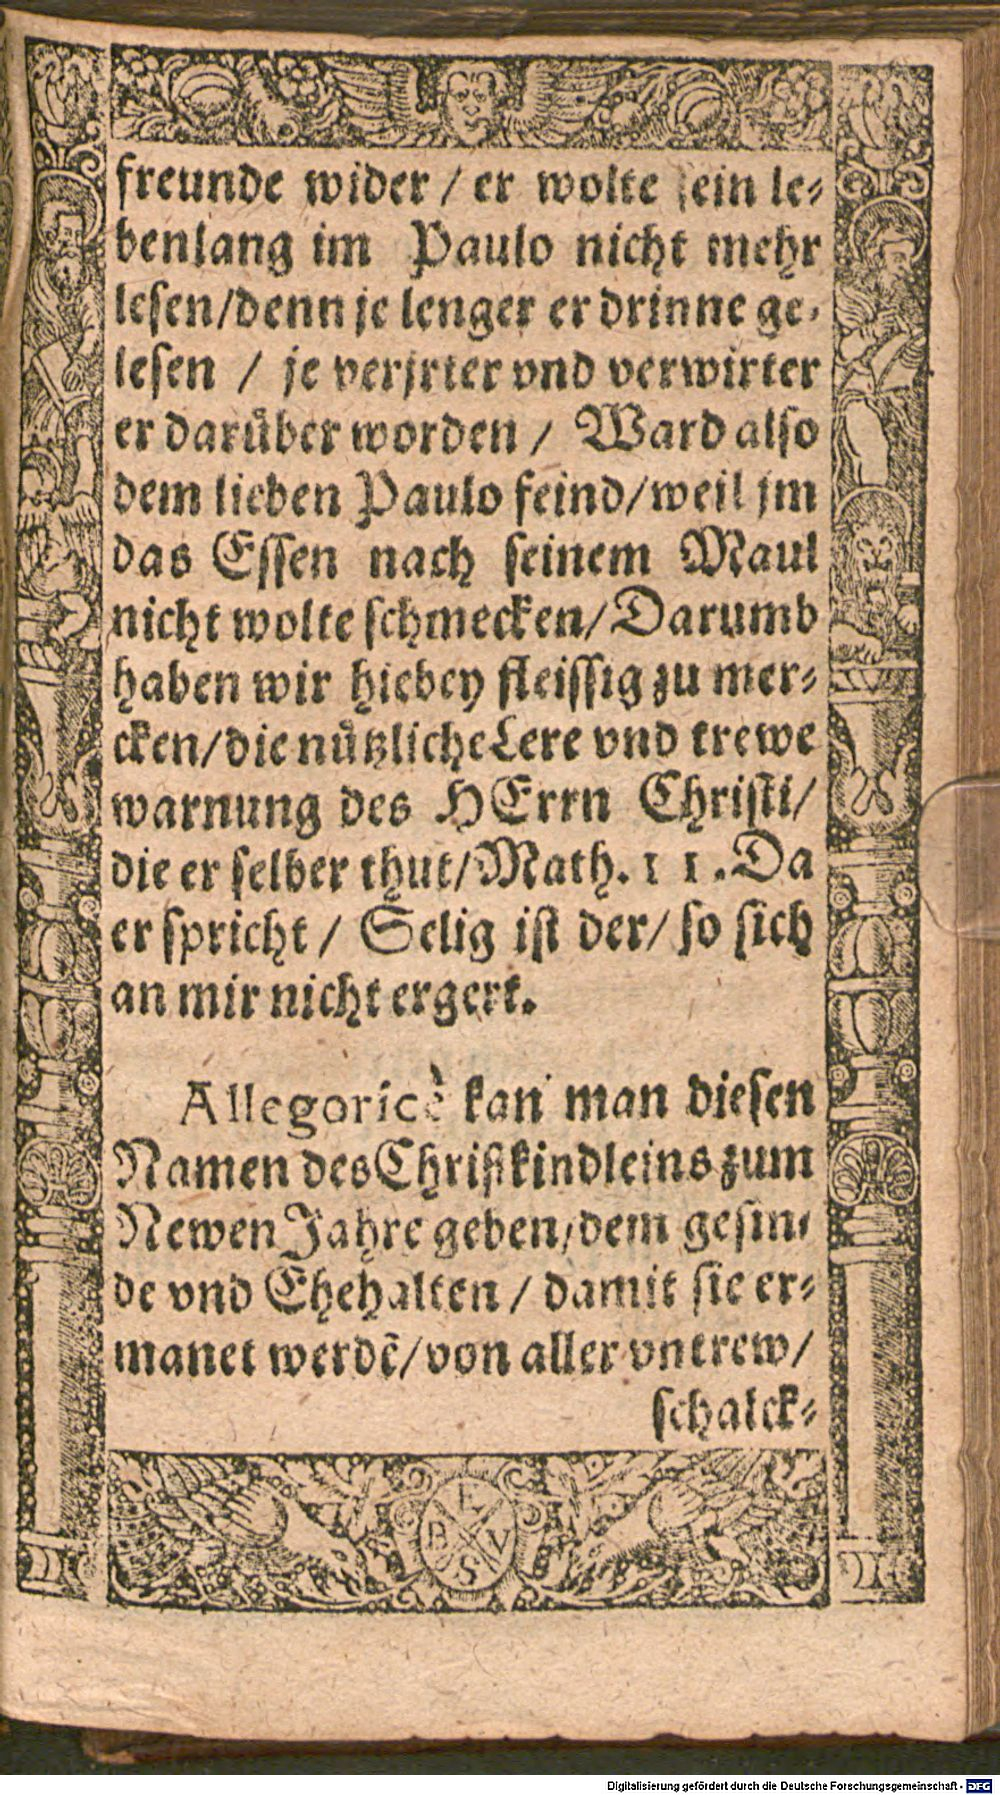 freunde wider / er wolte sein le⸗
benlang im Paulo nicht mehr
lesen/denn je lenger er drinne ge⸗
lesen / je verjrter vnd verwirter
er darüber worden / Ward also
dem lieben Paulo feind/weil jm
das Essen nach seinem Maul
nicht wolte schmecken/Darumb
haben wir hiebey fleissig zu mer⸗
cken/die nützliche Lere vnd trewe
warnung des HErrn Christi/
die er selber thut/Math. 11. Da
er spricht / Selig ist der/ so sich
an mir nicht ergert.
Allegoricè kan man diesen
Namen des Christkindleins zum
Newen Jahre geben/dem gesin⸗
de vnd Ehehalten / damit sie er⸗
manet werdē/von aller vntrew/
schalck⸗
E
B V
S
Digitalisierung gefördert durch die Deutsche Forschungsgemeinschaft - DFG